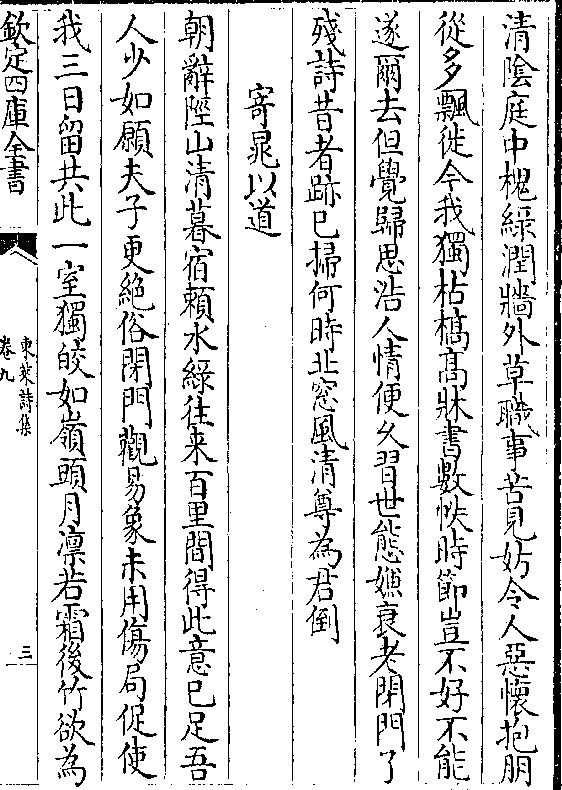 清隂庭中槐綠潤牆外草職事苦見妨令人惡懷抱朋
從多飄徙令我獨枯槁髙牀書數帙時節豈不好不能
遂爾去但覺歸思浩人情便乆習世態嫌衰老閉門了
殘詩昔者跡已掃何時北窓風清尊為君倒
寄晁以道
朝辭陘山清暮宿頼水綠往来百里間得此意已足吾
人少如願夫子更絶俗閉門觀易象未用傷局促使
我三日留共此一室獨皎如嶺頭月凛若霜後竹欲為
欽定四庫全書
東萊詩集
卷九
三